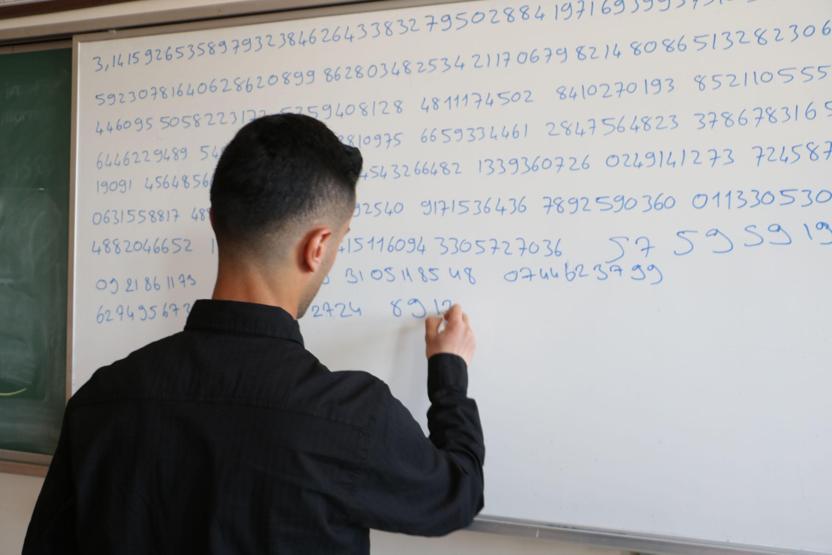 3,14159265358979323846264338327950288419716939937
59230781640628620899 86280348253421170679 8214 8086513282306
446095 5058223172 5359408128 4811174502 8410270193 852110555
6446229489 54 2810975 6659334461 2847564823 378678316
19091 4564856 4543266482 1339360726 0249141273 724587
0631558817 48 92540 9171536436 7892590360 011330530
4882046652 1 415116094 3305727036 57 59 59 19
09 21861173 31051185 48 0744623799
627495673 2724 89 12